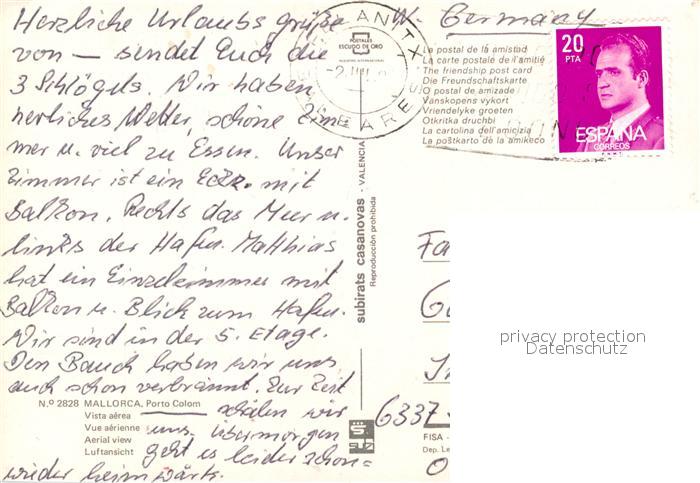 Herzliche Urlaubs grüße
von — sendet Euch die
3 Schlögels. Wir haben
herrliches Wetter, schöne Zim-
mer u. viel zu Essen. Unser
Zimmer ist ein Eckz. mit
Balkon. Rechts das Meer u.
links der Hafen. Matthias
hat ein Einzelzimmer mit
Balkon u. Blick zum Hafen.
Wir sind in der 5. Etage.
Den Bauch haben wir uns
auch schon verbrannt. Zur Zeit
schälen wir
uns. übermorgen
geht es leider schon
wieder heimwärts.
N.º 2828 MALLORCA. Porto Colom
Vista aérea
Vue aérienne
Aerial view
Luftansicht
subirats casanovas - VALENCIA
Reproducción prohibida
POSTALES
ESCUDO DE ORO
W. Germany
La postal de la amistad
La carte postale de l'amitié
The friendship post card
Die Freundschaftskarte
O postal de amizade
Vanskopens vykort
Vriendelyke groeten
Otkritka druchbi
La cartolina dell'amicizia
La poŝtkarto de la amikeco
20
PTA
ESPAÑA
CORREOS
F.N.M.T.
privacy protection
Datenschutz
6337
FISA -
Dep. Le